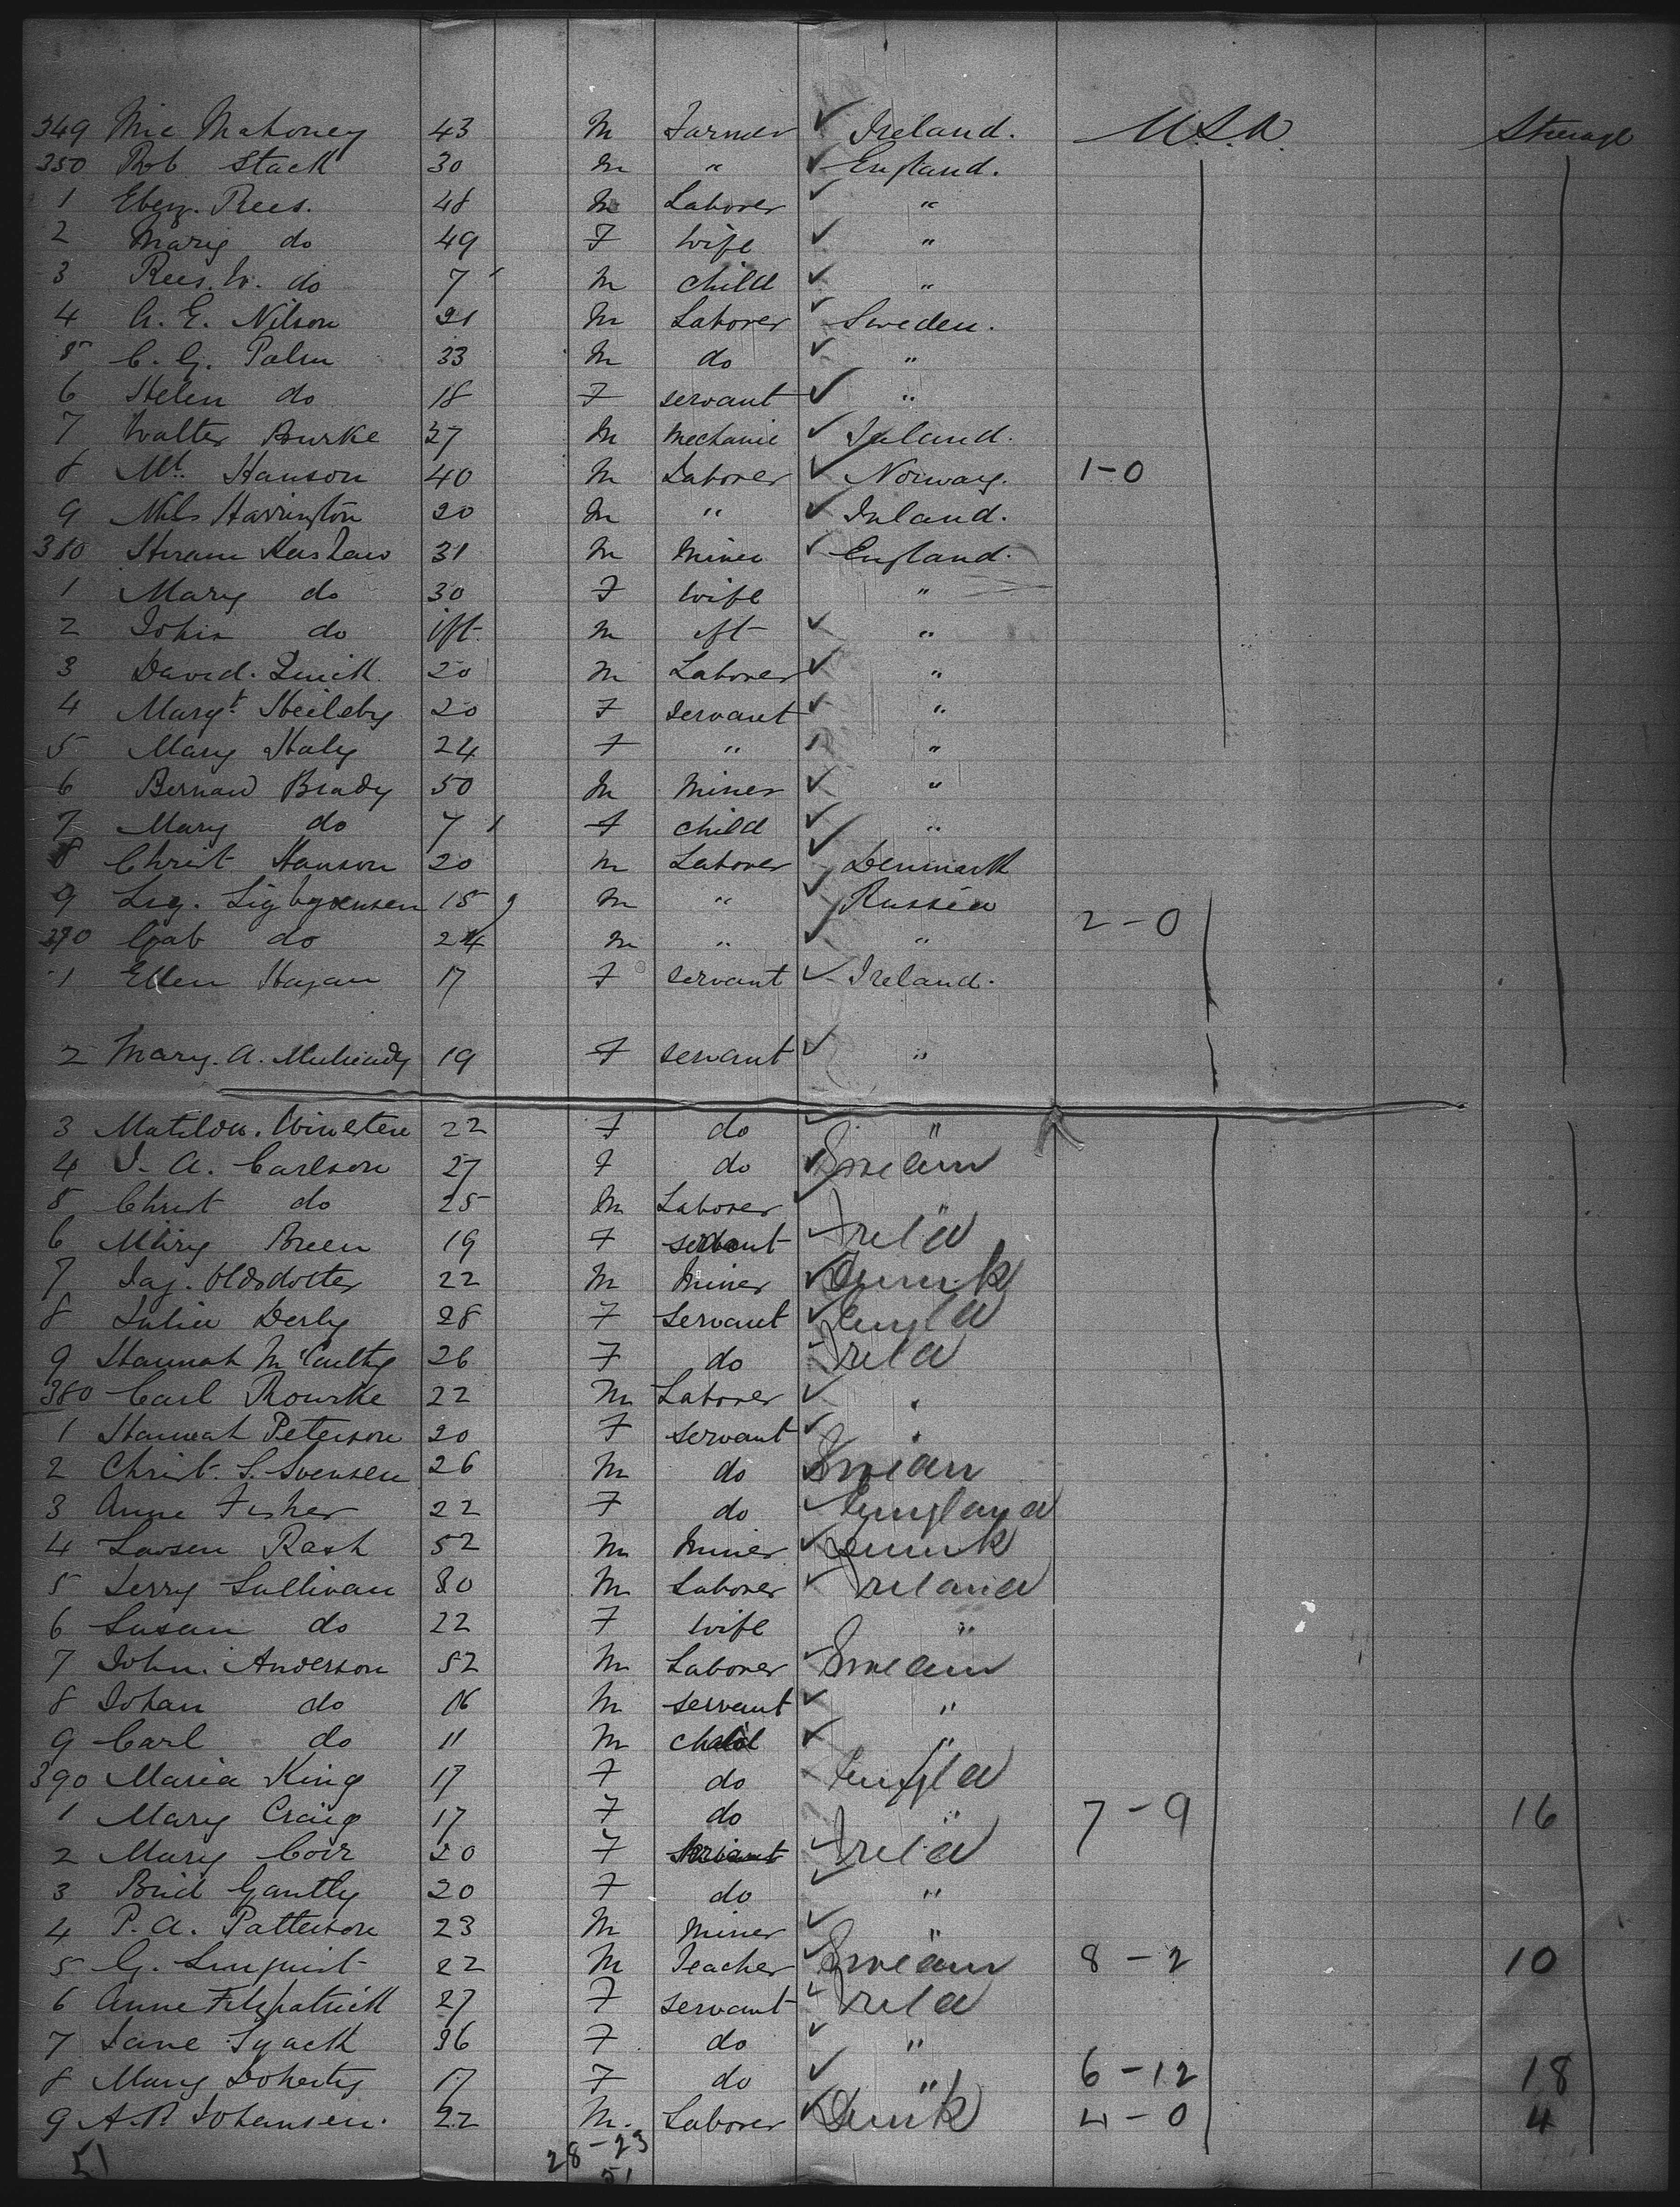 349 Mic Mahoney 43 M Farmer ✓ Ireland. U.S.A. Steerage
350 Rob Stack 30 M " ✓ England.
1 Ebenz. Rees. 48 M Laborer ✓ "
2 Mary do 49 F wife ✓ "
3 Rees. W. do 7 M child ✓ "
4 A. E. Nilson 21 M Laborer ✓ Sweden.
5 C. G. Palm 33 M do ✓ "
6 Helen do 18 F servant ✓ "
7 Walter Burke 27 M Mechanic ✓ Ireland.
8 Mt. Hanson 40 M Laborer ✓ Norway. 1-0
9 Harrington 20 M " ✓ Ireland.
360 Hiram Kershaw 31 M Miner ✓ England.
1 Mary do 30 F wife "
2 John do ift M ift ✓ "
3 David. Quick 20 M Laborer ✓ "
4 Margt. 20 F servant ✓ "
5 Mary Haly 24 F " "
6 Bernard Brady 50 M Miner ✓ "
7 Mary do 7 F child ✓ "
8 Christ Hanson 20 M Laborer ✓ Denmark
9 15 M " ✓ Russia
370 Gab do 24 M " ✓ " 2-0
1 Ellen Hagan 17 F servant ✓ Ireland.
2 Mary. A. 19 F servant ✓ "
3 Matilda. 22 F do ✓ "
4 J. A. Carlson 27 F do ✓ Sweden
5 Christ do 25 M Laborer ✓ "
6 Mary Breen 19 F servant ✓ Ireld
7 Oldsdotter 22 M Miner ✓ Denmk
8 Julia Derby 28 F servant ✓ Engld
9 Hannah McCarthy 26 F do ✓ Ireld
380 Carl Rourke 22 M Laborer ✓ "
1 Hannah Peterson 20 F servant ✓ "
2 Christ. S. Svensen 26 M do ✓ Sweden
3 Anne Fisher 22 F do ✓ England
4 Larsen Rash 52 M Miner ✓ Denmk
5 Jerry Sullivan 30 M Laborer ✓ Ireland
6 Susan do 22 F wife "
7 John. Anderson 52 M Laborer ✓ Sweden
8 Johan do 16 M servant ✓ "
9 Carl do 11 M child ✓ "
390 Maria King 17 F do Engld
1 Mary Craig 17 F do " 7-9 16
2 Mary 20 F servant ✓ Ireld
3 Brid Gantly 20 F do ✓ "
4 P. A. Patterson 23 M Miner ✓ "
5 G. 22 M Teacher ✓ Sweden 8-2 10
6 Anne Fitzpatrick 27 F servant ✓ Ireld
7 Jane 36 F do ✓ "
8 Mary Doherty 17 F do ✓ " 6-12 18
9 A. P. Johansen. 22 M. Laborer ✓ Denmk 4-0 4
51 28-23
51